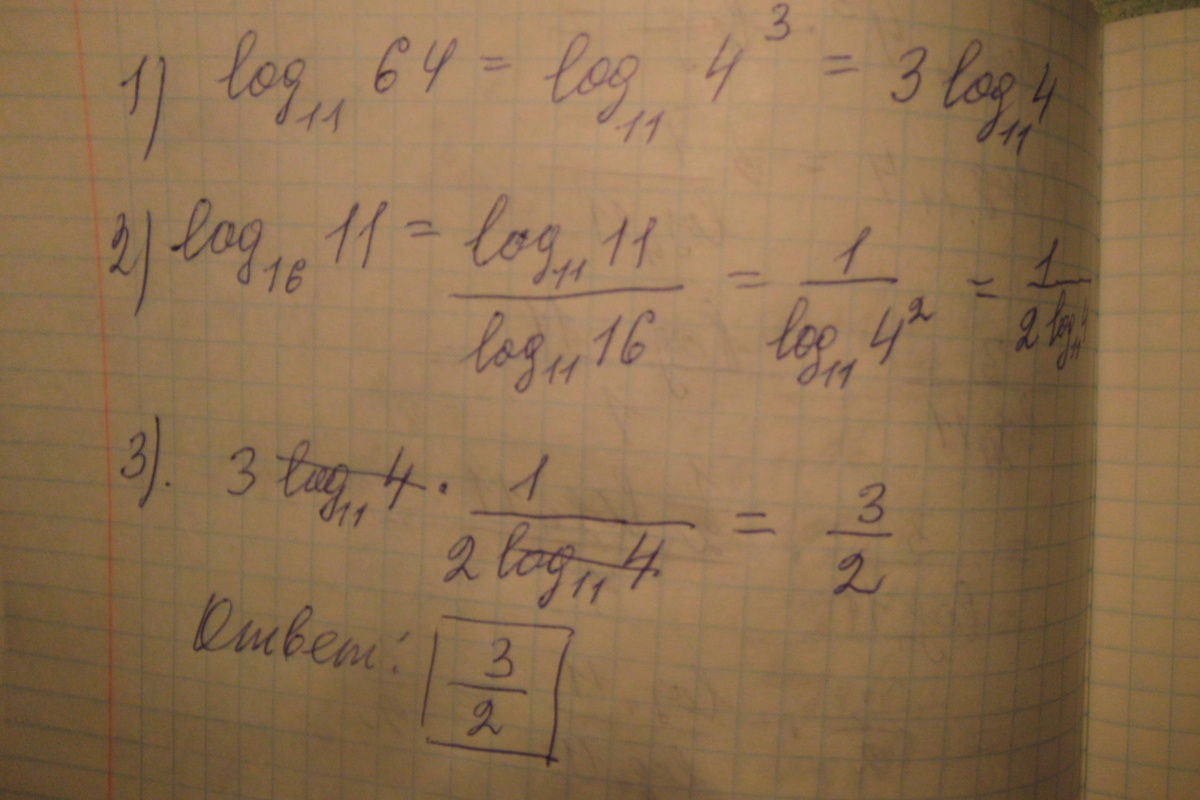 1) log₁₁ 64 = log₁₁ 4³ = 3 log₁₁ 4
2) log₁₆ 11 = log₁₁ 11 / log₁₁ 16 = 1 / log₁₁ 4² = 1 / 2 log₁₁ 4
3). 3 log₁₁ 4 · 1 / 2 log₁₁ 4 = 3 / 2
Ответ: 3 / 2